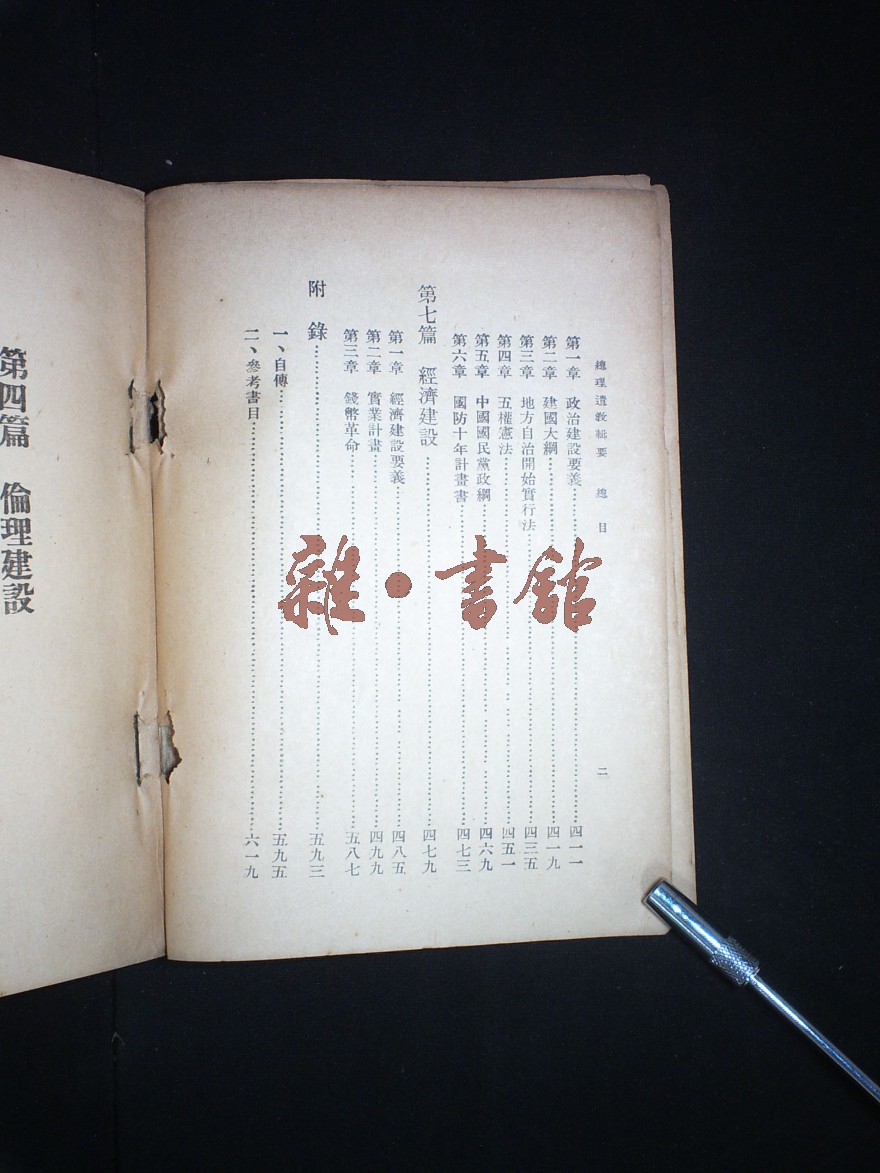 總理遺教輯要 總目 二
第一章 政治建設要義 四一一
第二章 建國大綱 四一九
第三章 地方自治開始實行法 四三五
第四章 五權憲法 四五一
第五章 中國國民黨政綱 四六九
第六章 國防十年計畫書 四七三
第七篇 經濟建設 四七九
第一章 經濟建設要義 四八五
第二章 實業計畫 四九九
第三章 錢幣革命 五八七
附錄 五九三
一、自傳 五九五
二、參考書目 六一九
第四篇 倫理建設
雜·書館